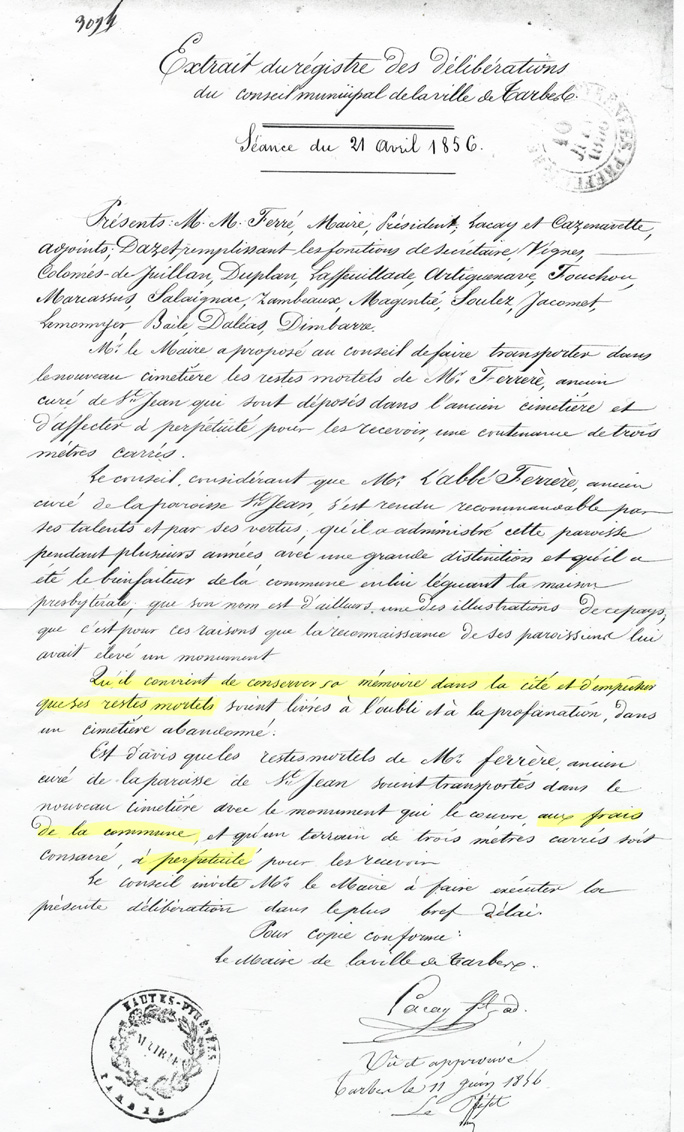 3094
Extrait du régistre des délibérations
du conseil municipal de la ville de Tarbes.
Séance du 21 Avril 1856.
10
1856
Présents: M. M. Ferré, Maire, Président, Lacay et Cazenavette,
adjoints, Dazet remplissant les fonctions de secrétaire, Vignes,
Colomès-de Juillan, Duplan, Laffeuillade, Artiguenave, Fouchou,
Marcassus, Salaignac, Zambeaux, Magentie, Soulez, Jacomet,
Lemonnyer Baile, Daléas, Dimbarre.
Mr. le Maire a proposé au conseil de faire transporter dans
le nouveau cimetière les restes mortels de Mr. Ferrère, ancien
curé de St. Jean qui sont déposés dans l'ancien cimetière et
d'affecter à perpétuité pour les recevoir, une contenance de trois
mètres carrés.
Le conseil, considérant que Mr. L'abbé Ferrère, ancien
curé de la paroisse St. Jean, s'est rendu recommandable par
ses talents et par ses vertus, qu'il a administré cette paroisse
pendant plusieurs années avec une grande distinction et qu'il a
été le bienfaiteur de la commune en lui léguant la maison
presbytérale. que son nom est d'ailleurs, une des illustrations de ce pays,
que c'est pour ces raisons que la reconnaissance de ses paroissiens lui
avait élevé un monument
Qu'il convient de conserver sa mémoire dans la cité et d'empêcher
que ses restes mortels soient livrés à l'oubli et à la profanation, dans
un cimetière abandonné.
Est d'avis que les restes mortels de Mr. ferrère, ancien
curé de la paroisse de St. Jean soient transportés dans le
nouveau cimetière avec le monument qui le couvre, aux frais
de la commune, et qu'un terrain de trois mètres carrés soit
consacré, à perpétuité pour les recevoir
Le conseil invite Mr. le Maire à faire exécuter la
présente délibération dans le plus bref délai.
Pour copie conforme:
Le Maire de la ville de Tarbes.
Lacay
HAUTES-PYRÉNÉES
MAIRIE
TARBES
Vu et approuvé
Tarbes le 11 juin 1856
Le Préfet